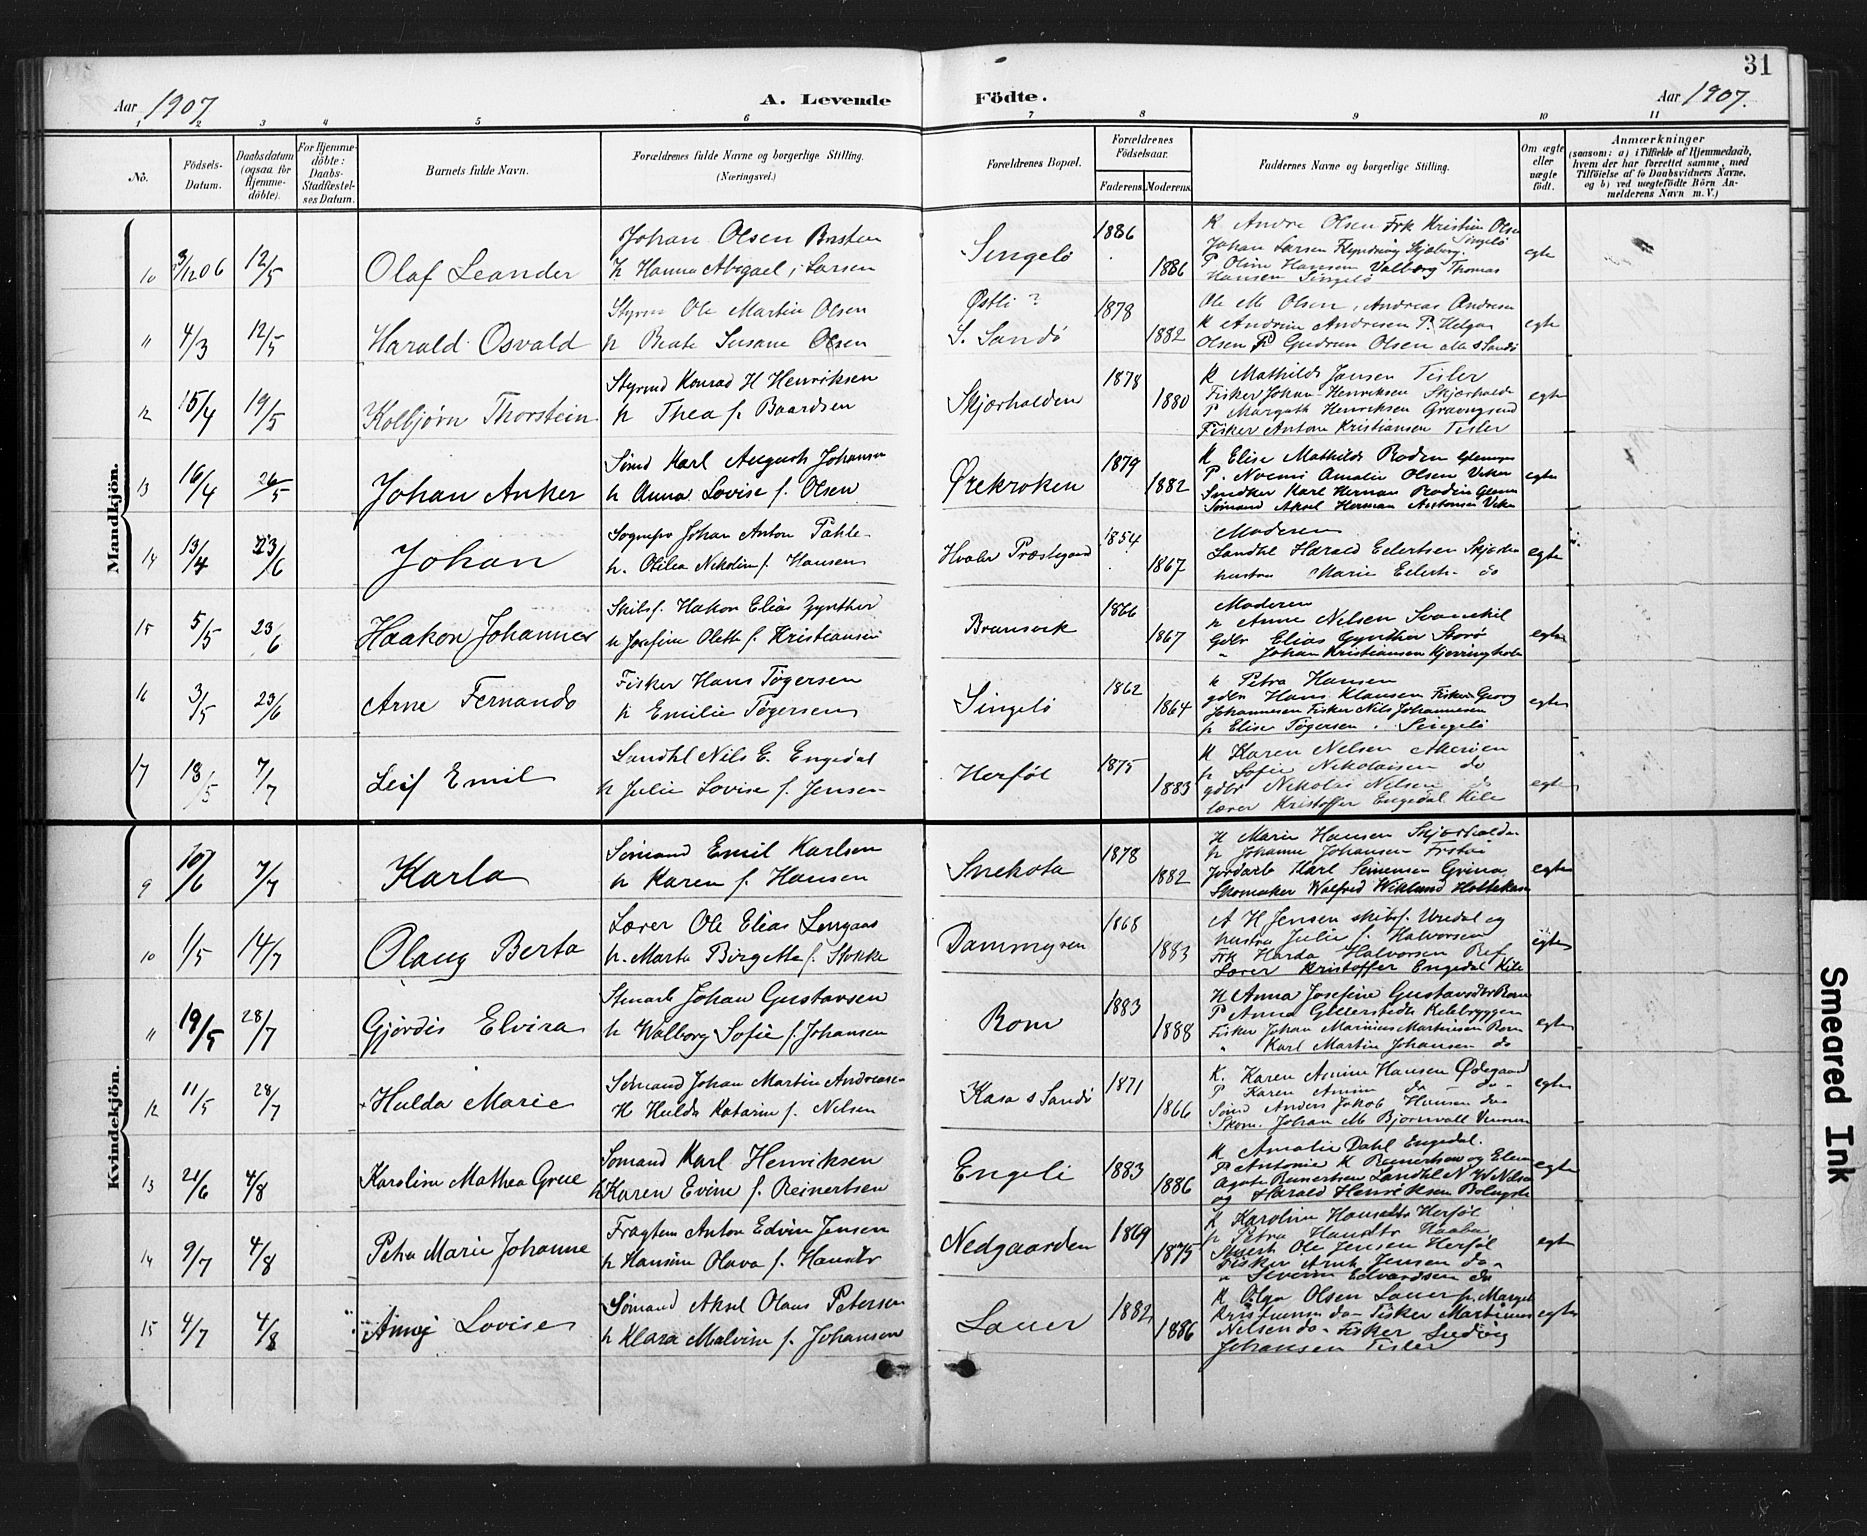 31
Aar 1907 A. Levende Födte. Aar 1907.
1 2 3 4 5 6 7 8 9 10 11
No.
Födsels-Datum.
Daabsdatum (ogsaa for Hjemme-döbte).
For Hjemme-döbte: Daabs-Stadfæstelses Datum.
Barnets fulde Navn.
Forældrenes fulde Navne og borgerlige Stilling. (Næringsvei.)
Forældrenes Bopæl.
Forældrenes Födselsaar.
Faderens. Moderens.
Faddernes Navne og borgerlige Stilling.
Om ægte eller uægte födt.
Anmærkninger
(saasom: a) i Tilfælde af Hjemmedaab, hvem der har forrettet samme, med Tilföielse af to Daabsvidners Navne, og b) ved uægtefödte Börn Anmelderens Navn m. V.)
Mandkjön.
Johan Olsen
10 3/12 06 12/5 Olaf Leander h Hanna Abegael Larsen
Singelö 1886 1886
K Andre Olsen Frk Kristine Olsen Singelö
Johan Larsen
P Oline Hansen Valborg Thomas
Hansen Singelö
egte
Styrm Ole Martin Olsen
11 4/3 12/5 Harald Osvald h Beate Susane Olsen
Östli ?
S. Sandö 1878 1882
Ole M Olsen, Andreas Andresen
K Andrine Andresen P. Helga
Olsen P Gudrun Olsen alle S Sandö
egte
Styrmd Konrad H Henriksen
12 15/4 19/5 Kolbjörn Thorstein h Thea f. Baardsen
Skjærhalden 1878 1880
K Mathilde Jensen Tisler
Fisker Johan Henriksen Skjærhalde
P Margith Henriksen
Fisker Anton Kristiansen Tisler
egte
Sömd Karl August Johansen
13 16/4 26/5 Johan Anker h Anna Lovise f. Olsen
Ørekroken 1879 1882
K Elise Mathilde Bodin
P. Noemi Amalie Olsen Viker
Snedker Karl Herman Bodin
Sömand Aksel Herman Antonsen Viker
egte
Sognepr Johan Anton Pahle
14 13/4 23/6 Johan h. Otilia Nikoline f. Hansen
Hvaler Præstegaard 1854 1867
Moderen
Landhl Harald Eilertsen
hustru Marie Eilerts. do
egte
Skibsf. Hakon Elias Gynther
15 5/5 23/6 Haakon Johannes h Josefine Olette f. Kristiansen
Bransvik 1866 1867
Moderen
h Anne Nelsen
Gdbr Elias Gynther Storö
" Johan Kristiansen Kjerringholm
egte
Fisker Hans Tögersen
16 3/5 23/6 Arne Fernando h Emilie Tögersen
Singelö 1862 1864
K Petra Hansen
gdbr Hans Klausen Fisker Georg
Johannesen Fisker Nils Johannesen
h Elise Tögersen. Singelö
egte
Landhl Nils E. Engedal
17 13/5 7/7 Leif Emil h Julie Lovise f. Jensen
Herföl 1875 1883
K Karen Nelsen Akeröen
h Sofie Nikolaisen do
gdbr Nikolai Nelsen do
lærer Kristoffer Engedal Kile
egte
Kvindekjön.
Sömand Emil Karlsen
9 10/6 7/7 Karla h Karen f. Hansen
Snekota 1878 1882
K Marie Hansen Skjærhalden
h Johanne Johansen
Jordarb Karl Simensen
Skomaker Walfred Wiklund
egte
Lærer Ole Elias
10 1/5 14/7 Olaug Berta h. Marta Birgitte f. Stokke
Dammyren 1868 1883
A H Jensen skibsf. Urdal og
hustru Julie f. Halvorsen
Frk Harda Halvorsen
Lærer Kristoffer Engedal Kile
egte
Stenarb Johan Gustavsen
11 19/5 28/7 Gjördis Elvira h Walborg Sofie f. Johansen
Rom 1883 1888
K Anna Josefine Gustavsen Rom
P Anna
Fisker Johan Marinius Martinsen Rom
" Karl Martin Johansen do
egte
Sömand Johan Martin Andreasen
12 11/5 28/7 Hulda Marie H Hulda Katarine f. Nelsen
Kasa S Sandö 1871 1866
K. Karen Amine Hansen Ödegaard
P Karen Amine do do
Sömd Anders Jakob Hansen do
Skom. Johan M Bjornvall
egte
Sömand Karl Henriksen
13 21/6 4/8 Karoline Mathea Grue h Karen Evine f. Reinertsen
Engeli 1883 1886
K Amalie Dahl Engedal.
P Antonie K Reinertsen og
Agate Reinertsen Landhl N W Nelsen
og Harald Henriksen
egte
Fragtem Anton Edvin Jensen
14 9/7 4/8 Petra Marie Johanne h Hansine Olava f.
Nedgaarden 1869 1875
K Karoline Herföl
h Petra
Ole Jensen Herföl
Fisker Arnt Jensen do
" Severin Edvardsen do
egte
Sömand Aksel Olaus Petersen
15 4/7 4/8 Lovise h Klara Malvine f. Johansen
Lauer 1882 1886
K Olga Olsen Lauer
do Fisker Martinus
Nelsen do Fisker Ludvig
Johansen Tisler
egte
Smeared Ink